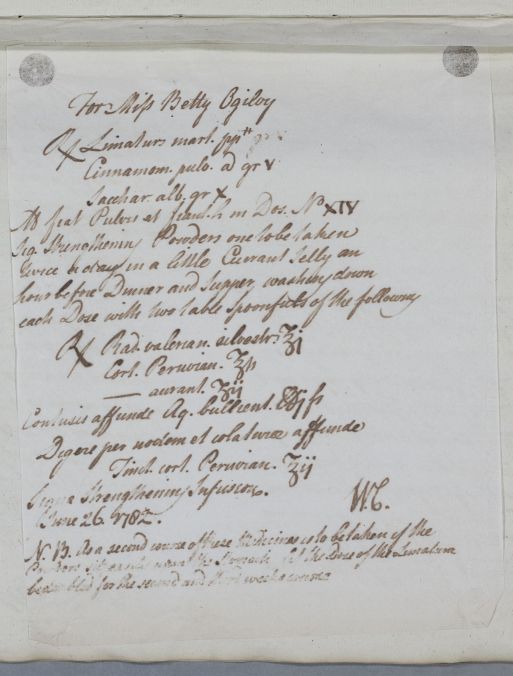 For Miss Betty Ogilvy
℞ Limatura mart. ppt
Cinnamom. pulv. a gr v
Sacchar. alb. gr x
M fiat Pulvis et fiant h m Dos. No XIV
Sig. Strengthening Powders one to be taken
twice a day in a little Currant Jelly an
hour before Dinner and Supper, washing down
each Dose with two table spoonfuls of the following
℞ Rad. valerian. silvestr. ℥j
Cort. Peruvian. ℥ß
— aurant. ʒij
Contusis affunde Aq. bullient. ß
Digere per noctem et colaturæ affunde
Tinct. cort. Peruvian. ℥ij
Signa Strengthening Infusion.
WC.
June 26. 1782.
N. B. As a second course of these Medicines is to be taken if the
Powders sit easily upon the Stomach let the Dose of the Limatura
be doubled for the second and third weeks course